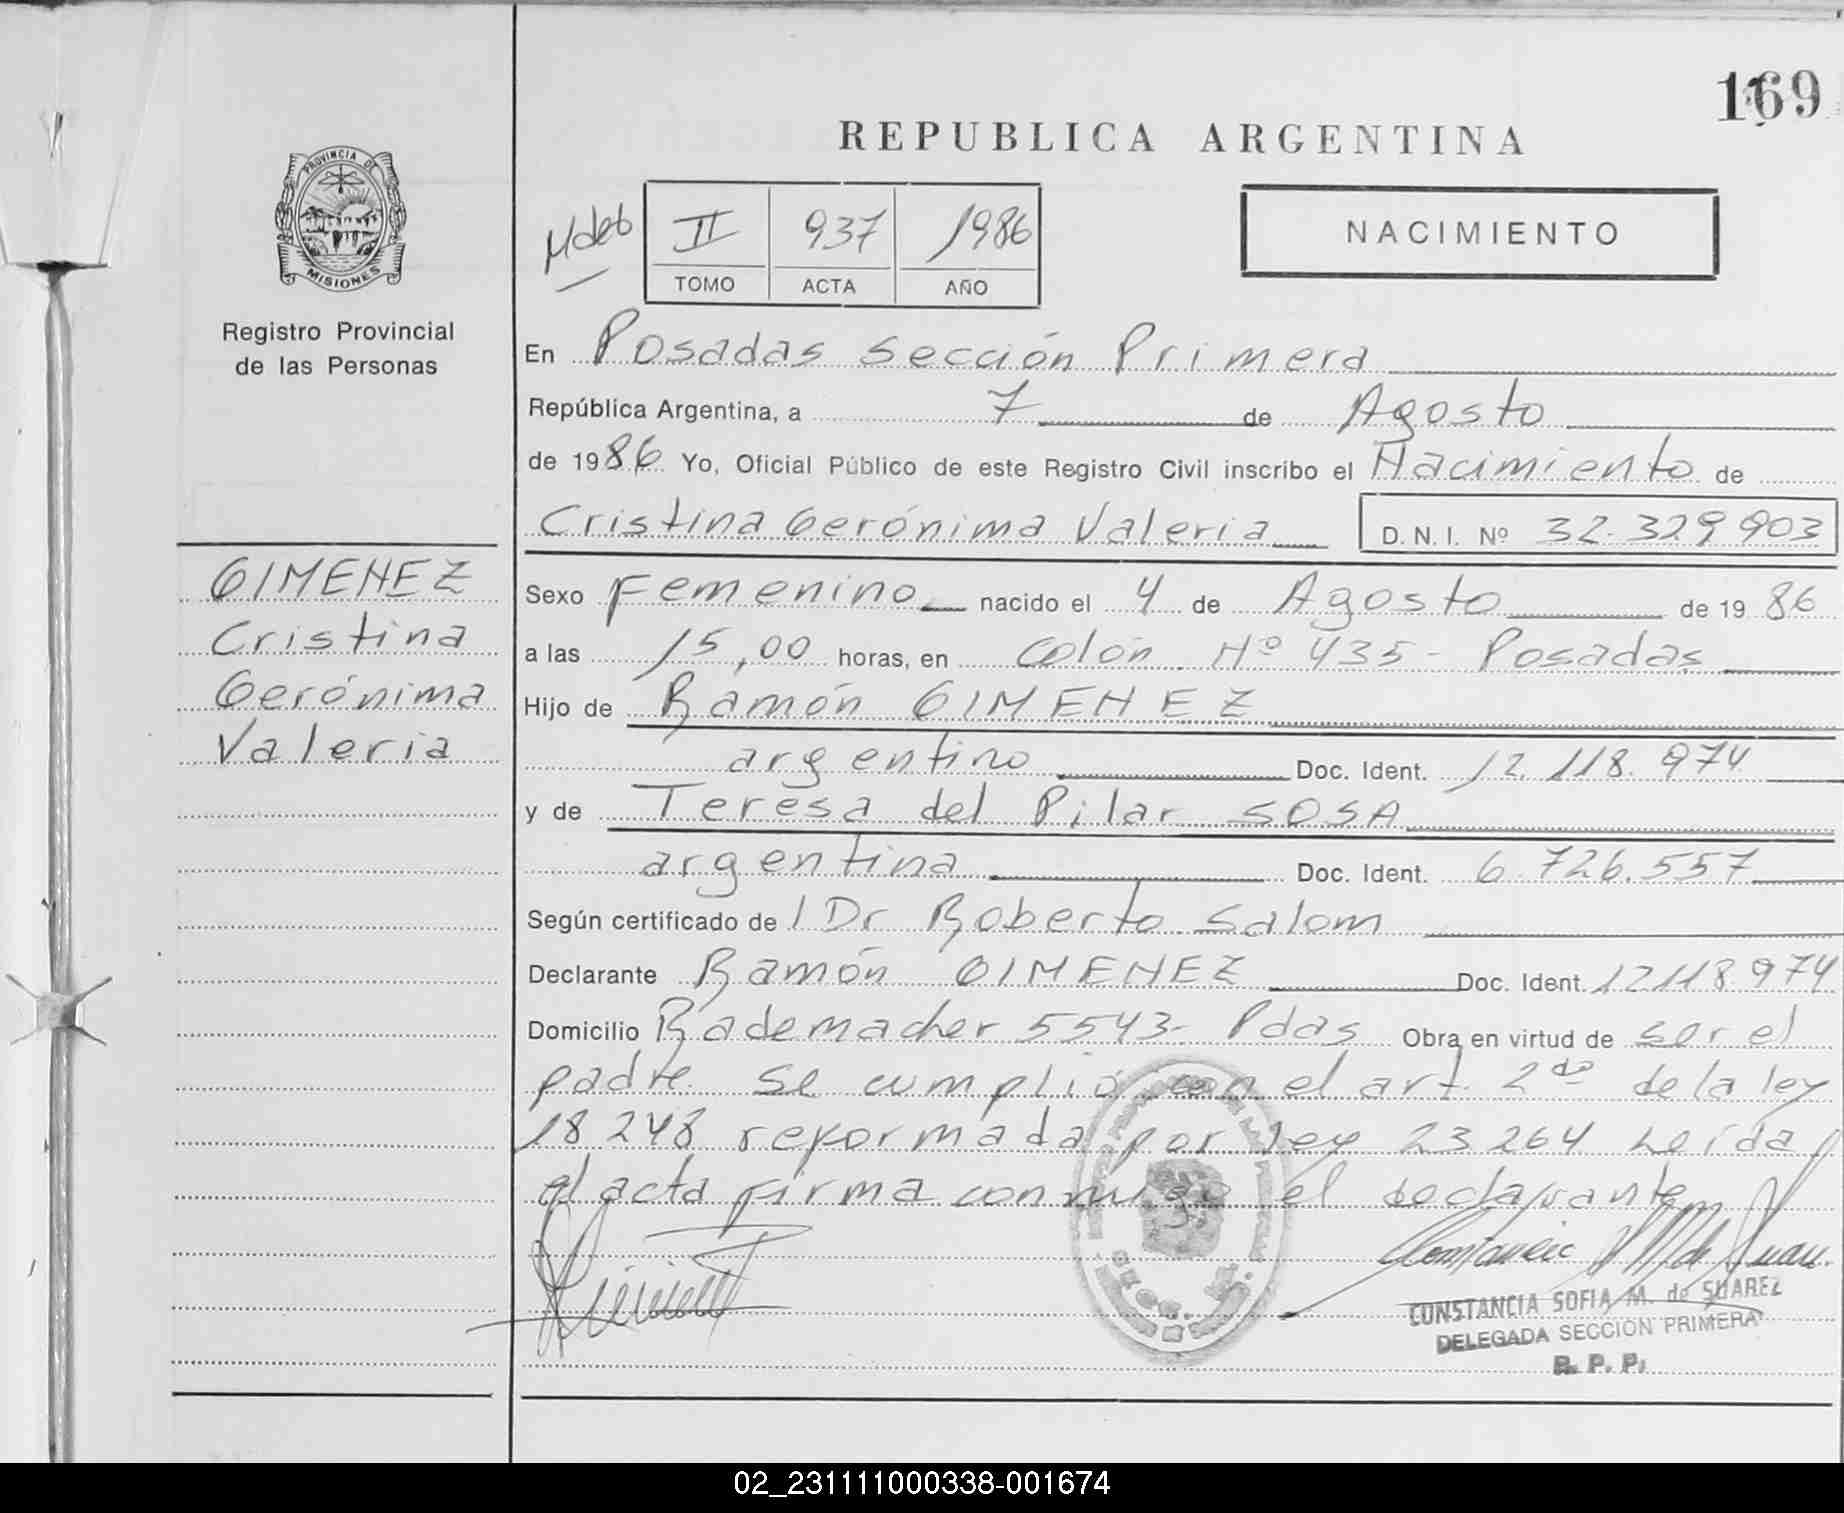 169
REPUBLICA ARGENTINA
PROVINCIA DE
MISIONES
Registro Provincial
de las Personas
II 937 1986
TOMO ACTA AÑO
NACIMIENTO
En Posadas Sección Primera
República Argentina, a 7 de Agosto
de 1986 Yo, Oficial Público de este Registro Civil inscribo el Nacimiento de
Cristina Gerónima Valeria D.N.I. Nº 32.329.903
GIMENEZ
Cristina
Gerónima
Valeria
Sexo Femenino nacido el 4 de Agosto de 1986
a las 15,00 horas, en Colón Nº 435 - Posadas
Hijo de Ramón GIMENEZ
argentino Doc. Ident. 12.118.974
y de Teresa del Pilar SOSA
argentina Doc. Ident. 6.726.557
Según certificado de l Dr Roberto Salom
Declarante Ramón GIMENEZ Doc. Ident. 12118974
Domicilio Rademacher 5543- Pdas Obra en virtud de ser el
padre. Se cumplió con el art. 2do de la ley
18248 reformada por ley 23264 Leída
el acta firma conmigo el declarante
CONSTANCIA SOFIA M. de SUAREZ
DELEGADA SECCION PRIMERA
R. P. P.
02_231111000338-001674